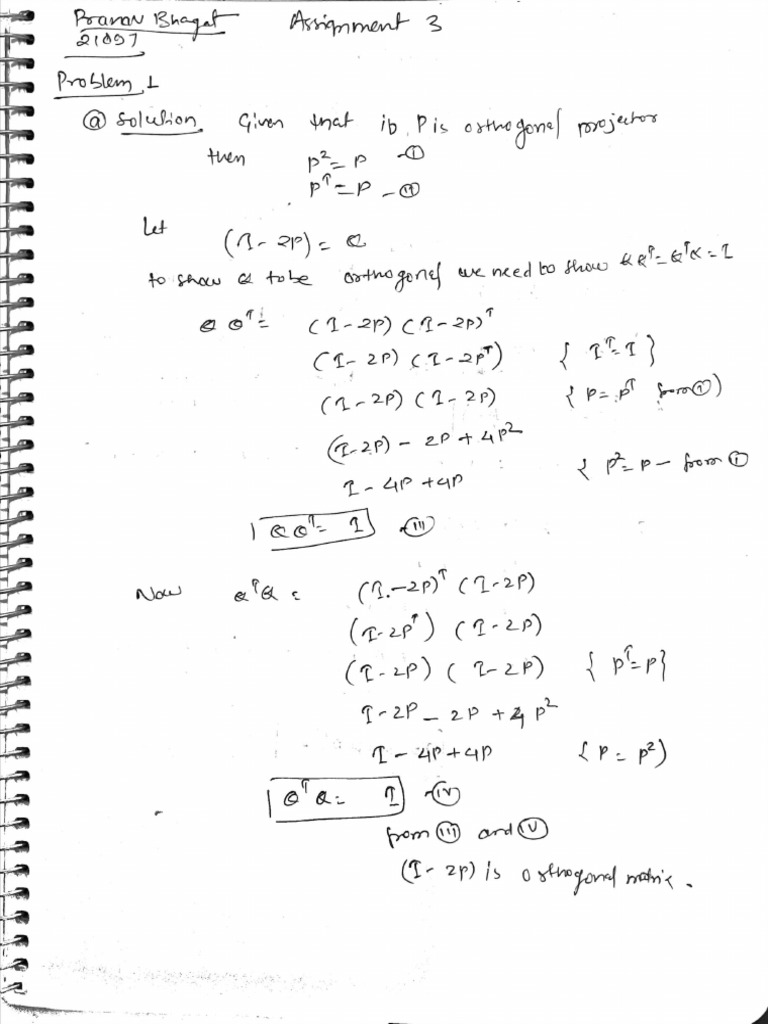 Pranav Bhagat Assignment 3
21097
Problem 1
(a) Solution Given that if P is orthogonal projector
then P² = P - (I)
Pᵀ = P - (II)
Let
(I - 2P) = Q
to show Q to be orthogonal we need to show QQᵀ = QᵀQ = I
QQᵀ = (I - 2P) (I - 2P)ᵀ
(I - 2P) (I - 2Pᵀ) { Iᵀ = I }
(I - 2P) (I - 2P) { P = Pᵀ from (II) )
(I - 2P) - 2P + 4P²
{ P² = P - from (I)
I - 4P + 4P
QQᵀ = I - (III)
Now QᵀQ = (I - 2P)ᵀ (I - 2P)
(I - 2Pᵀ) (I - 2P)
(I - 2P) (I - 2P) { Pᵀ = P }
I - 2P - 2P + 4P²
I - 4P + 4P { P = P² )
QᵀQ = I - (IV)
from (III) and (IV)
(I - 2P) is orthogonal matrix.